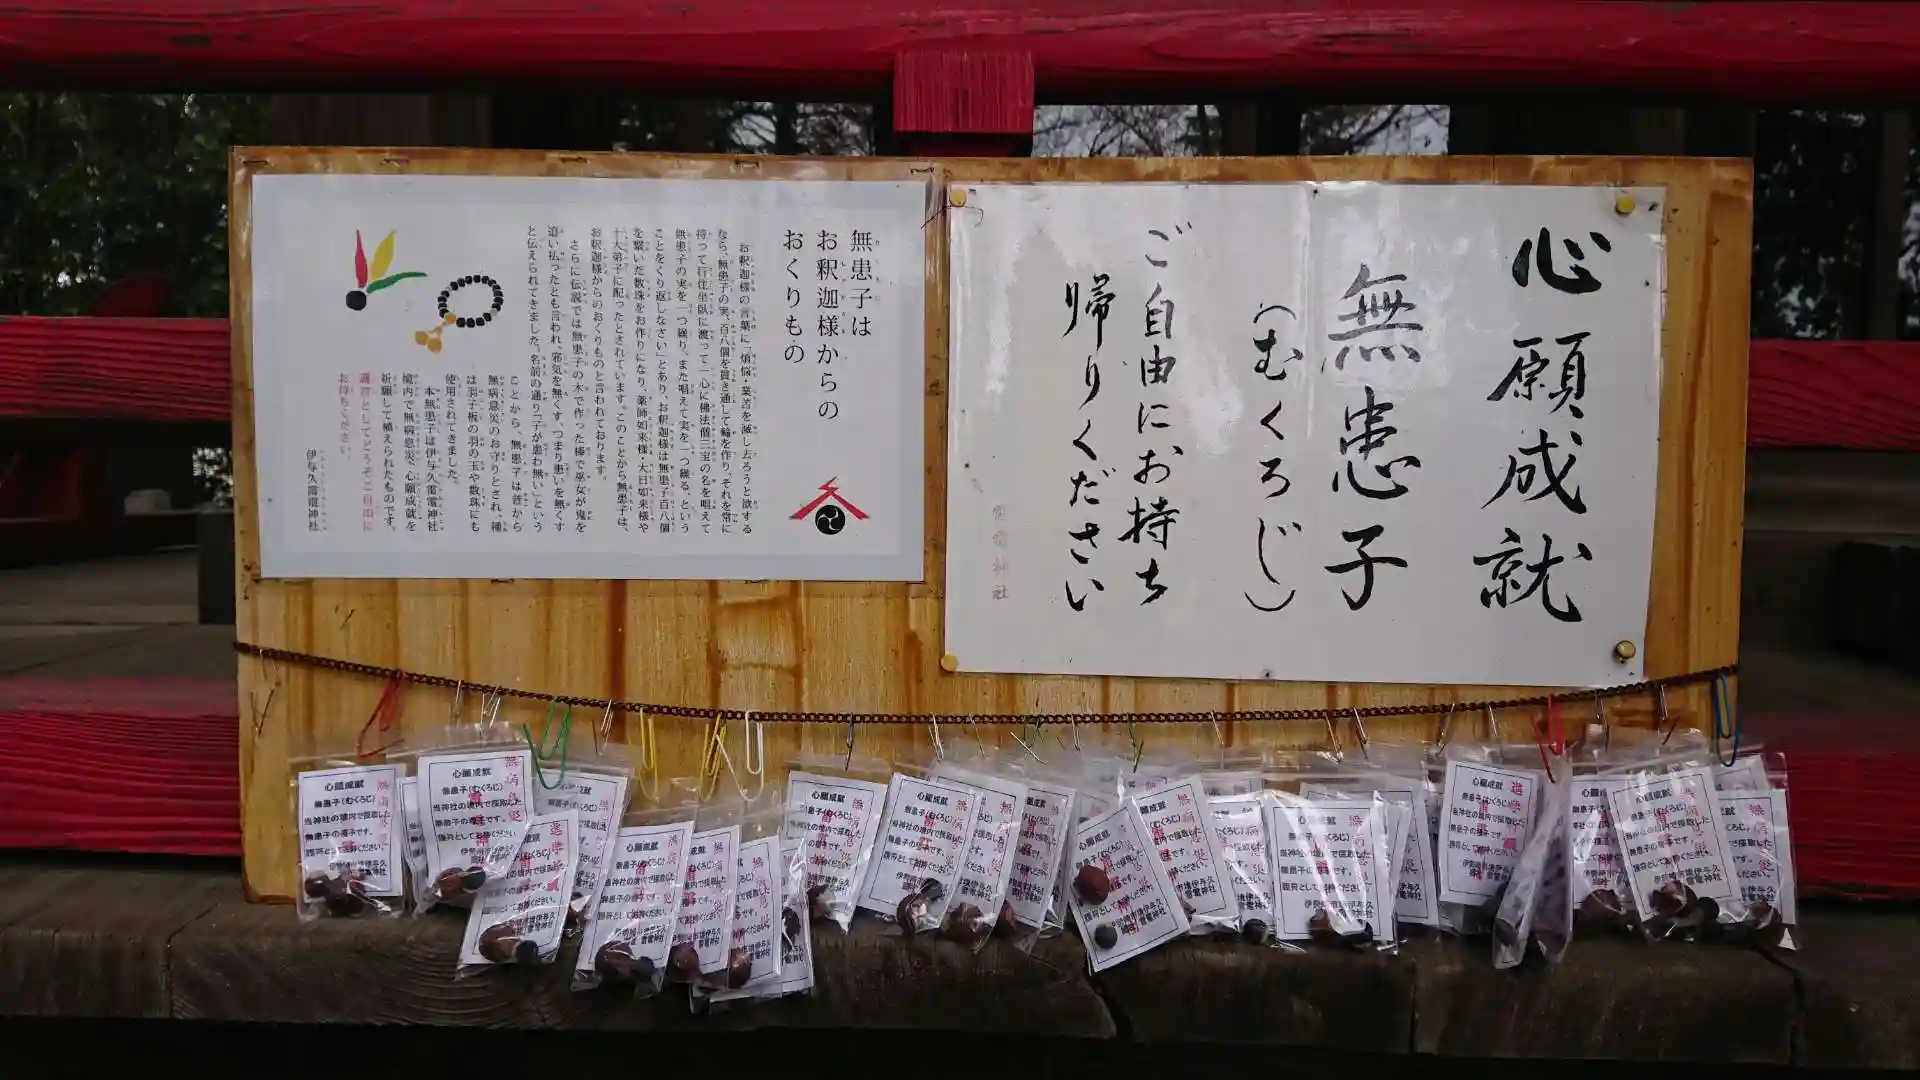 心願成就
無患子
（むくろじ）
ご自由にお持ち
帰りください
雷電神社
無患子は
お釈迦様からの
おくりもの
お釈迦様の言葉に「煩悩・業苦を滅し去ろうと欲する
なら、無患子の実、百八個を貫き通して輪を作り、それを常に
持って行住坐臥に渡って一心に佛法僧三宝の名を唱えて
無患子の実を一つ繰り、また唱えて実を一つ繰る、という
ことをくり返しなさい」とあり、お釈迦様は無患子百八個
を繋いだ数珠をお作りになり、薬師如来様・大日如来様や
十大弟子に配ったとされています。このことから無患子は、
お釈迦様からのおくりものと言われております。
さらに伝説では無患子の木で作った棒で巫女が鬼を
追い払ったとも言われ、邪気を無くす、つまり患いを無くす
と伝えられてきました。名前の通り「子が患わ無い」という
ことから、無患子は昔から
無病息災のお守りとされ、種
は羽子板の羽の玉や数珠にも
使用されてきました。
本無患子は伊与久雷電神社
境内で無病息災、心願成就を
祈願して植えられたものです。
護符としてどうぞご自由に
お持ちください。
伊与久雷電神社
心願成就
無患子（むくろじ）
当神社の境内で採取した
無患子の種子です。
護符としてお持ちください。
伊勢崎市境伊与久
雷電神社
無病息災